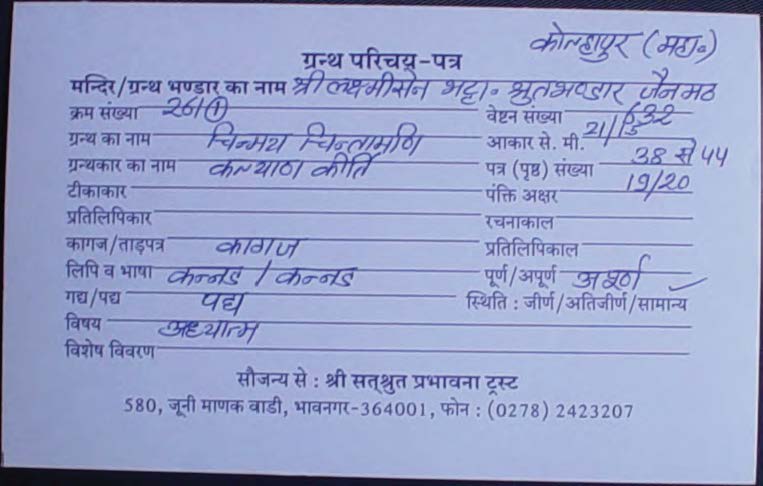 कोल्हापुर (महा॰)
ग्रन्थ परिचय-पत्र
मन्दिर/ग्रन्थ भण्डार का नाम श्री लक्ष्मीसेन भट्टा॰ श्रुतभण्डार जैनमठ
क्रम संख्या 261① वेष्टन संख्या 632
ग्रन्थ का नाम चिन्मय चिन्तामणि आकार से. मी. 21/
ग्रन्थकार का नाम कल्याण कीर्ति पत्र (पृष्ठ) संख्या 38 से 44
टीकाकार पंक्ति अक्षर 19/20
प्रतिलिपिकार रचनाकाल
कागज/ताड़पत्र कागज प्रतिलिपिकाल
लिपि व भाषा कन्नड / कन्नड पूर्ण/अपूर्ण अपूर्ण
गद्य/पद्य पद्य स्थिति : जीर्ण/अतिजीर्ण/सामान्य ✓
विषय अध्यात्म
विशेष विवरण
सौजन्य से : श्री सत्श्रुत प्रभावना ट्रस्ट
580, जूनी माणक वाडी, भावनगर-364001, फोन : (0278) 2423207